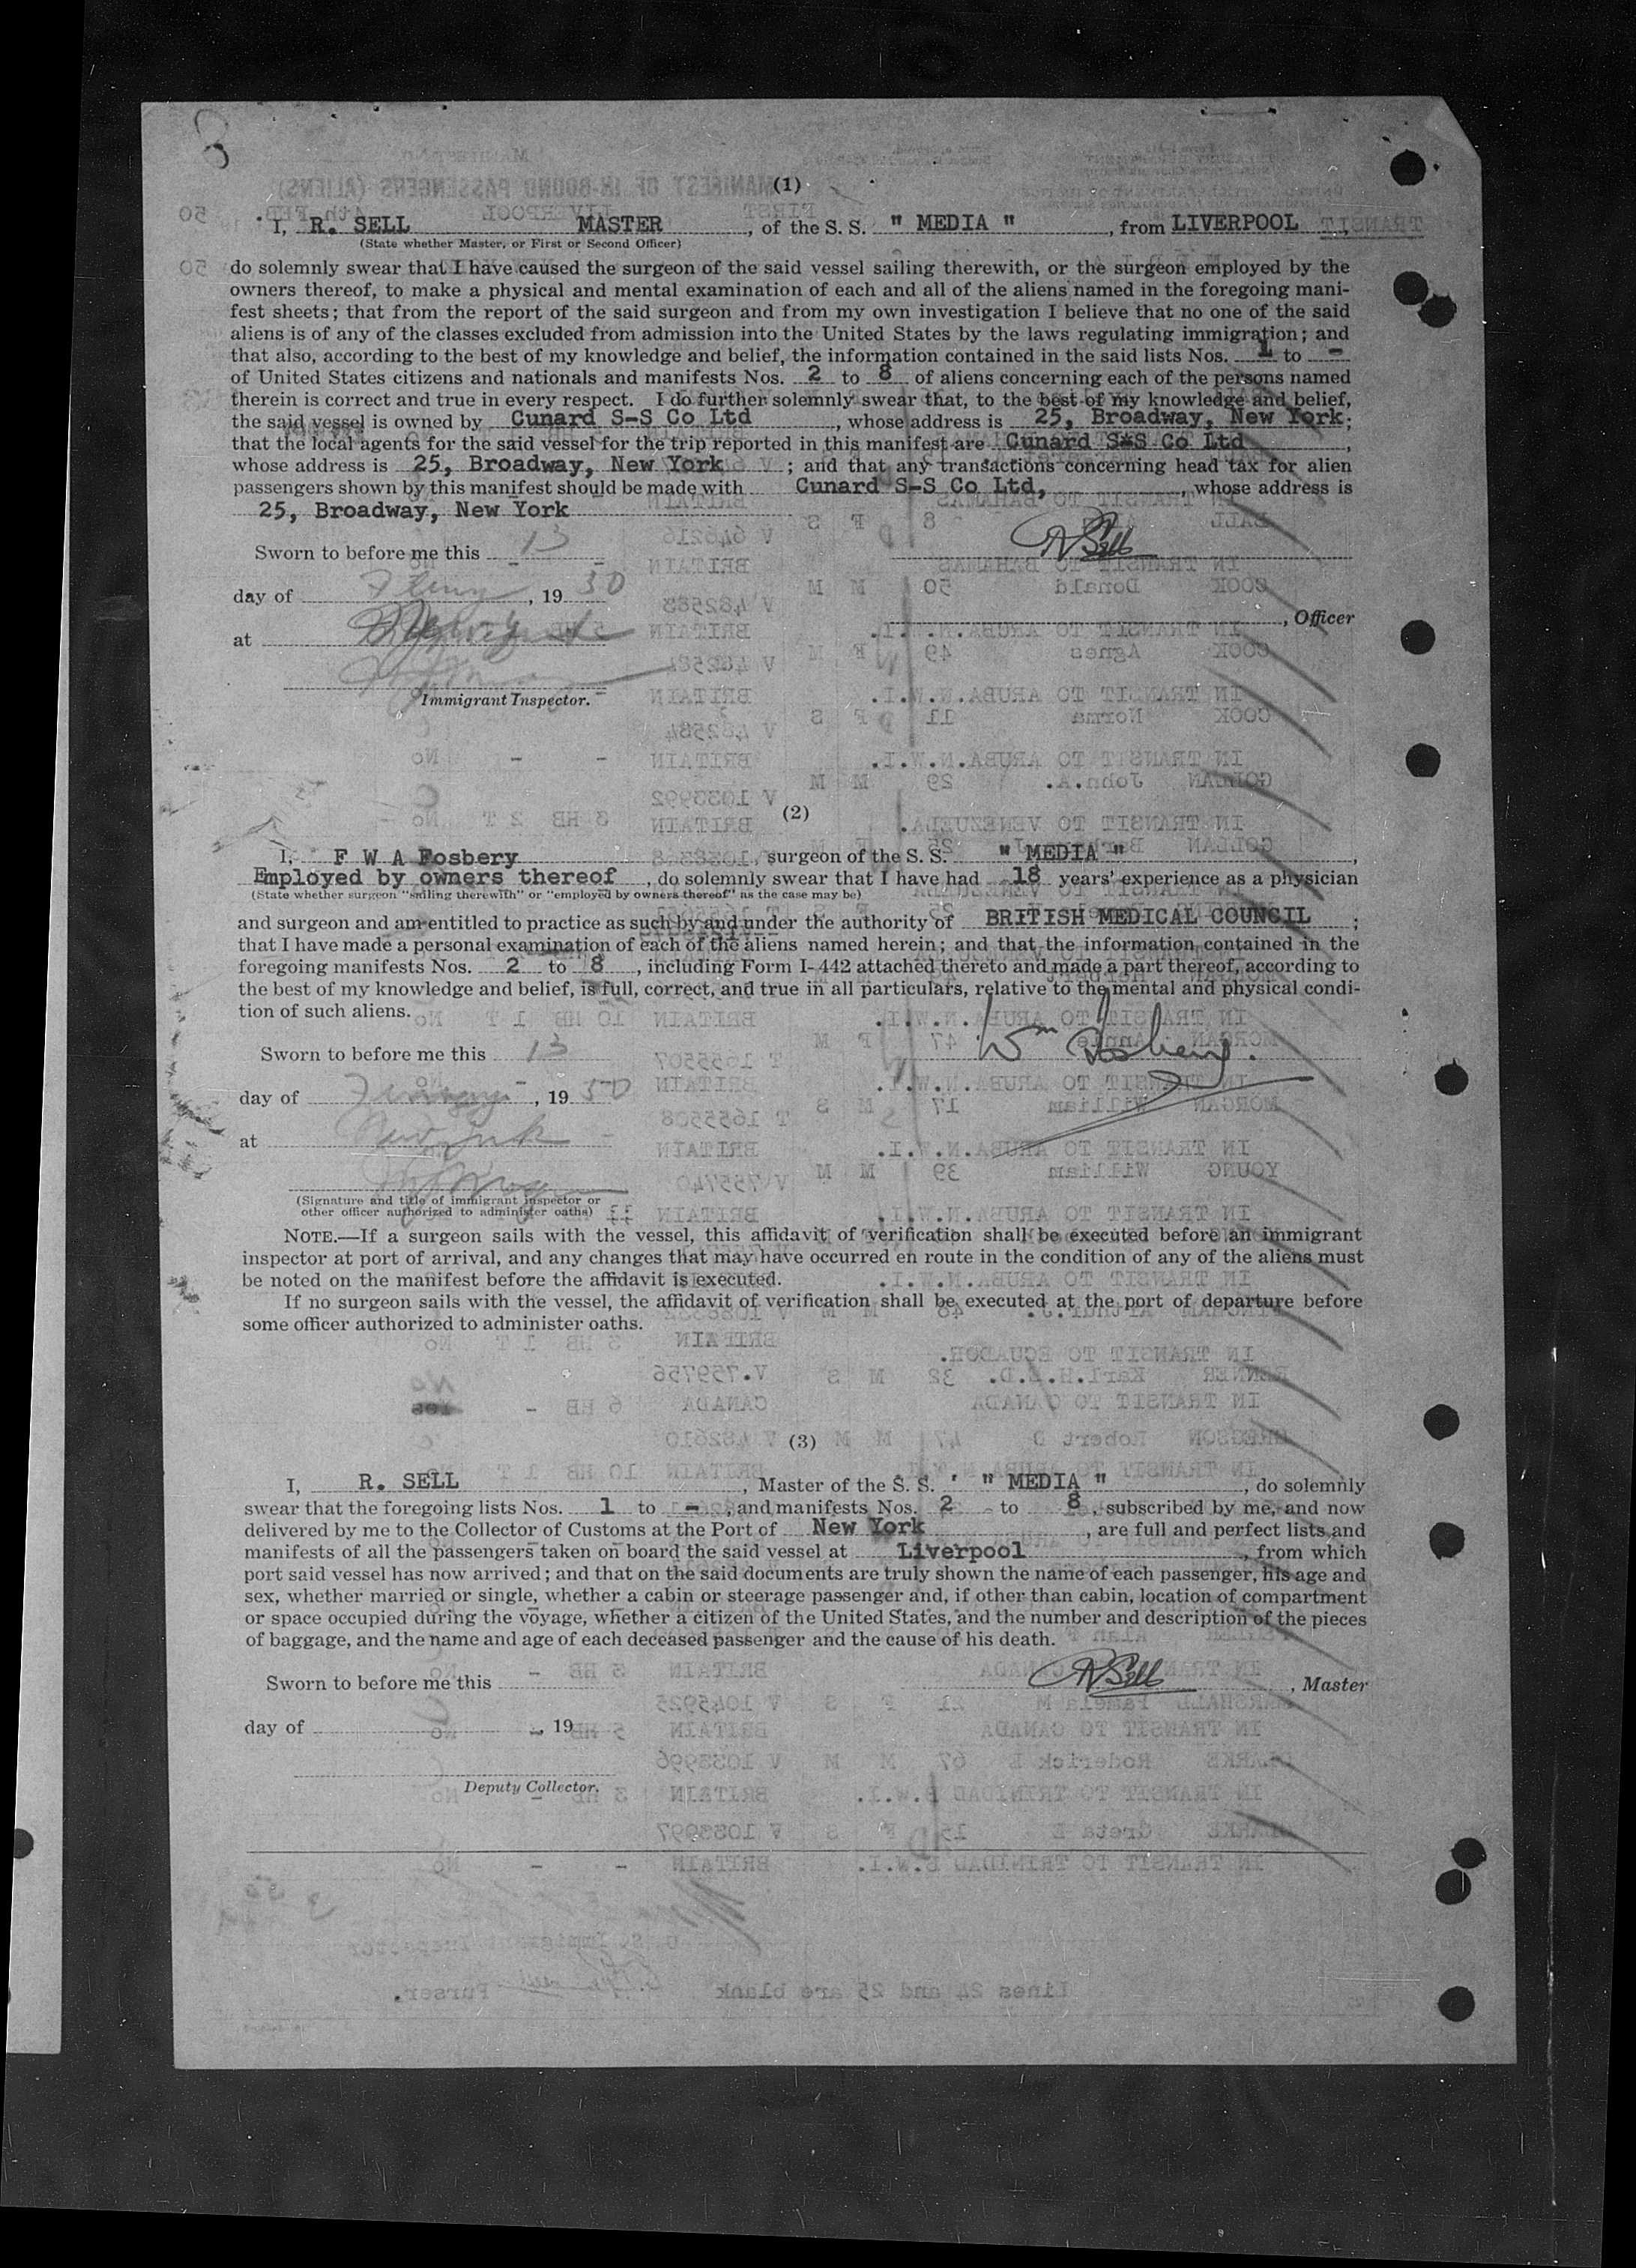 8
(1)
I, R. SELL MASTER, of the S. S. " MEDIA ", from LIVERPOOL,
(State whether Master, or First or Second Officer)
do solemnly swear that I have caused the surgeon of the said vessel sailing therewith, or the surgeon employed by the
owners thereof, to make a physical and mental examination of each and all of the aliens named in the foregoing mani-
fest sheets; that from the report of the said surgeon and from my own investigation I believe that no one of the said
aliens is of any of the classes excluded from admission into the United States by the laws regulating immigration; and
that also, according to the best of my knowledge and belief, the information contained in the said lists Nos. 1 to -
of United States citizens and nationals and manifests Nos. 2 to 8 of aliens concerning each of the persons named
therein is correct and true in every respect. I do further solemnly swear that, to the best of my knowledge and belief,
the said vessel is owned by Cunard S-S Co Ltd, whose address is 25, Broadway, New York;
that the local agents for the said vessel for the trip reported in this manifest are Cunard S-S Co Ltd,
whose address is 25, Broadway, New York; and that any transactions concerning head tax for alien
passengers shown by this manifest should be made with Cunard S-S Co Ltd, , whose address is
25, Broadway, New York
Sworn to before me this 13 R Sell
day of , 19 50
, Officer
at
Immigrant Inspector.
(2)
I, F W A Fosbery, surgeon of the S. S. " MEDIA ",
Employed by owners thereof, do solemnly swear that I have had -18 years' experience as a physician
(State whether surgeon "sailing therewith" or "employed by owners thereof" as the case may be)
and surgeon and am entitled to practice as such by and under the authority of BRITISH MEDICAL COUNCIL;
that I have made a personal examination of each of the aliens named herein; and that the information contained in the
foregoing manifests Nos. 2 to 8, including Form I-442 attached thereto and made a part thereof, according to
the best of my knowledge and belief, is full, correct, and true in all particulars, relative to the mental and physical condi-
tion of such aliens.
Sworn to before me this 13 Wm Fosbery.
day of , 19 50
at New York
(Signature and title of immigrant inspector or
other officer authorized to administer oaths)
NOTE.—If a surgeon sails with the vessel, this affidavit of verification shall be executed before an immigrant
inspector at port of arrival, and any changes that may have occurred en route in the condition of any of the aliens must
be noted on the manifest before the affidavit is executed.
If no surgeon sails with the vessel, the affidavit of verification shall be executed at the port of departure before
some officer authorized to administer oaths.
(3)
I, R. SELL, Master of the S. S. " MEDIA ", do solemnly
swear that the foregoing lists Nos. 1 to -, and manifests Nos. 2 to 8, subscribed by me, and now
delivered by me to the Collector of Customs at the Port of New York, are full and perfect lists and
manifests of all the passengers taken on board the said vessel at Liverpool, from which
port said vessel has now arrived; and that on the said documents are truly shown the name of each passenger, his age and
sex, whether married or single, whether a cabin or steerage passenger and, if other than cabin, location of compartment
or space occupied during the voyage, whether a citizen of the United States, and the number and description of the pieces
of baggage, and the name and age of each deceased passenger and the cause of his death.
Sworn to before me this R Sell, Master
day of , 19
Deputy Collector.